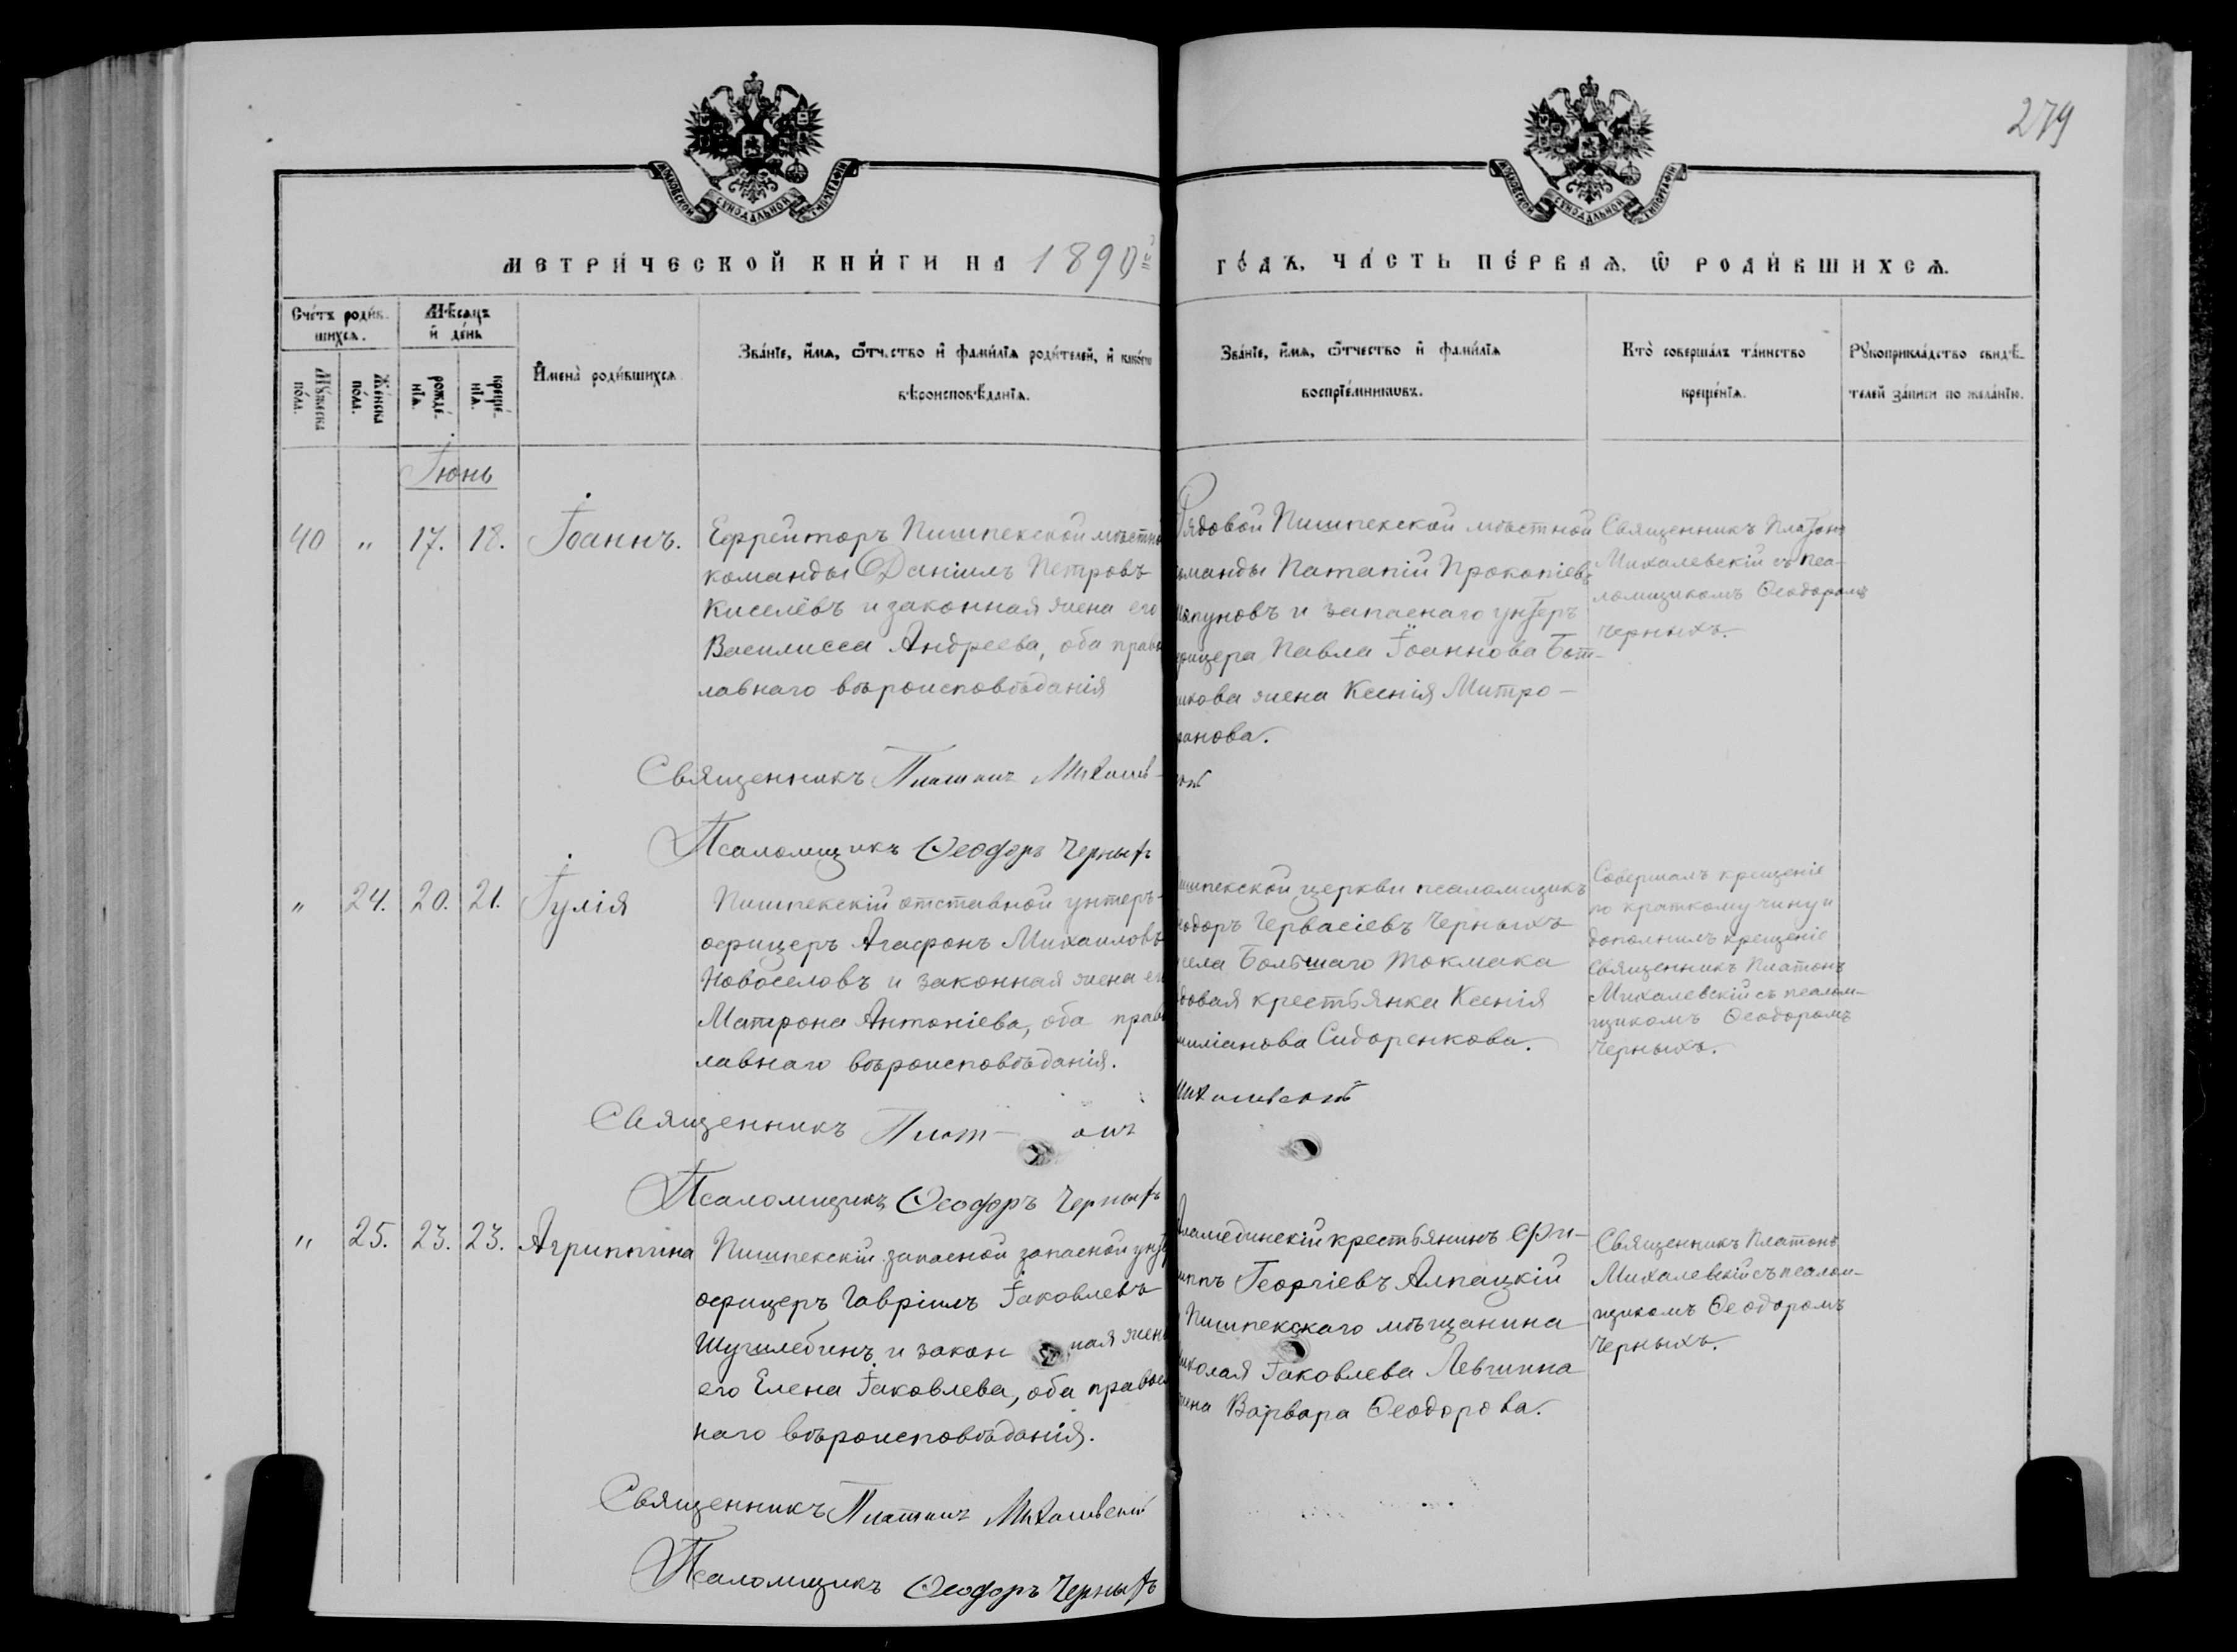 279
МОСКОВСКОЙ СѴНОДАЛЬНОЙ ТИПОГРАФІИ
МОСКОВСКОЙ СѴНОДАЛЬНОЙ ТИПОГРАФІИ
МЕТРИ́ЧЕСКОЙ КНИ́ГИ НА 1890й
ГО́ДЪ, ЧА́СТЬ ПЕ́РВАѦ, Ѽ РОДИ́ВШИХСѦ.
Сче́тъ роди́в-
шихсѧ.
Мꙋ́жеска по́ла.
Же́нска по́ла.
Мѣ́сѧцъ
и҆ де́нь
рожде́-
нїѧ.
креще́-
нїѧ.
И҆мена̀ роди́вшихсѧ
Зва́нїе, и҆́мѧ, ѻ҆́тчество и҆ фами́лїѧ роди́телей, и҆ како́гѡ
вѣроисповѣ́данїѧ.
Зва́нїе, и҆́мѧ, ѻ҆́тчество и҆ фами́лїѧ
воспрїе́мникѡвъ.
Кто̀ соверша́лъ та́инство
креще́нїѧ.
Рꙋкоприкла́дство свидѣ́-
телей за́писи по жела́нїю.
Іюнь
40 " 17. 18. Іоаннъ.
Ефрейторъ Пишпекской мѣстно
команды Даніилъ Петровъ
Киселёвъ и законная жена его
Василисса Андреева, оба право
лавнаго вѣроисповѣданія
Рядовой Пишпекской мѣстной
оманды Патапій Прокопіевъ
апуновъ и запаснаго унтеръ
фицера Павла Іоаннова Бот-
икова жена Ксенія Митро-
анова.
Священникъ Платонъ
Михалевскій съ пса-
ломщикомъ Ѳеодоромъ
Черныхъ.
Священникъ Платонъ Михалев-
скій
Псаломщикъ Ѳеодоръ Черныхъ
" 24. 20. 21. Іулія
Пишпекскій отставной унтеръ-
офицеръ Агафонъ Михаиловъ
Новоселовъ и законная жена ег
Матрона Антоніева, оба прав
лавнаго вѣроисповѣданія.
ишпекской церкви псаломщикъ
еодоръ Гервасіевъ Черныхъ
села Большаго Токмака
довая крестьянка Ксенія
миліанова Сидоренкова.
Совершалъ крещеніе
по краткому чину и
дополнилъ крещеніе
Священникъ Платонъ
Михалевскій съ псалом-
щикомъ Ѳеодоромъ
Черныхъ.
Священникъ Плат-онъ
Михалевскій
Псаломщикъ Ѳеодоръ Черныхъ
" 25. 23. 23. Агриппина
Пишпекскій запасной запасной унте
офицеръ Гавріилъ Іаковлевъ
и законная жена
его Елена Іаковлева, оба правос
наго вѣроисповѣданія.
Аламединскій крестьянинъ Фи-
иппъ Георгіевъ Алпацкій
Пишпекскаго мѣщанина
иколая Іаковлева Левшина
жена Варвара Ѳеодорова.
Священникъ Платонъ
Михалевскій съ псалом-
щикомъ Ѳеодоромъ
Черныхъ.
Священникъ Платонъ Михалевскій
Псаломщикъ Ѳеодоръ Черныхъ